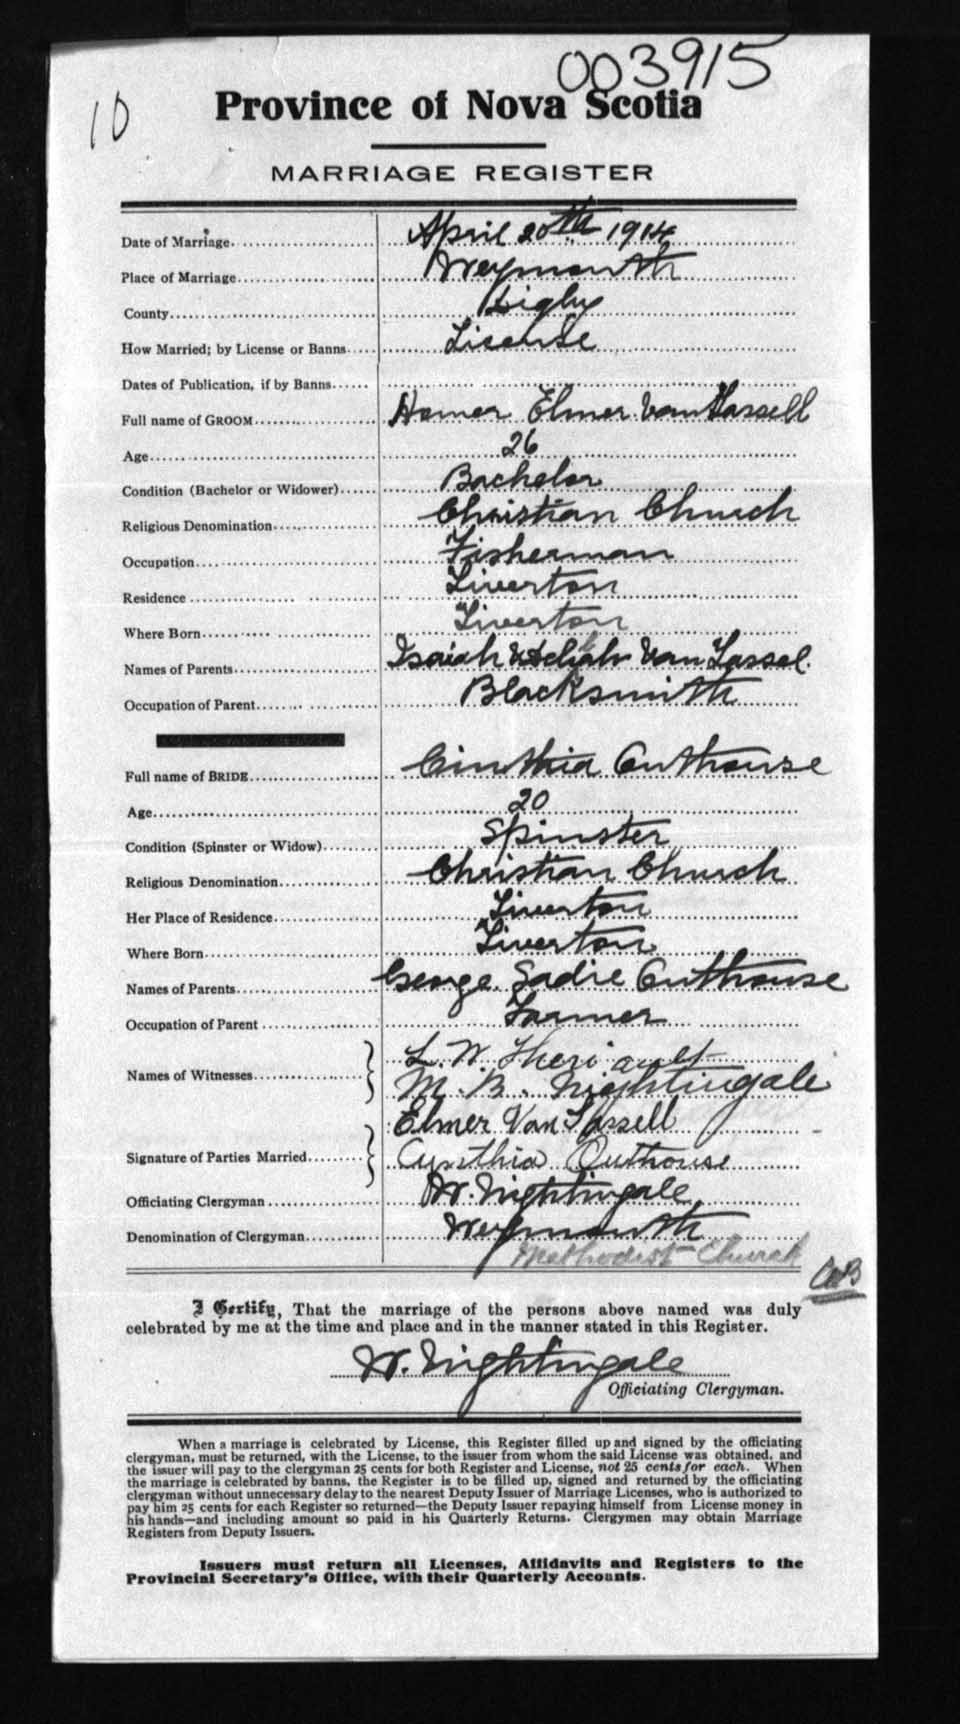 003915
10
Province of Nova Scotia
MARRIAGE REGISTER
Date of Marriage April 20th 1914
Place of Marriage Weymouth
County Digby
How Married; by License or Banns License
Dates of Publication, if by Banns
Full name of GROOM Homer Elmer Van Tassell
Age 26
Condition (Bachelor or Widower) Bachelor
Religious Denomination Christian Church
Occupation Fisherman
Residence Tiverton
Where Born Tiverton
Names of Parents Isaiah & Van Tassel.
Occupation of Parent Blacksmith
Full name of BRIDE Cinthia Outhouse
Age 20
Condition (Spinster or Widow) Spinster
Religious Denomination Christian Church
Her Place of Residence Tiverton
Where Born Tiverton
Names of Parents George Sadie Outhouse
Occupation of Parent Farmer
L. W Theriault
Names of Witnesses
M. B. Nightingale
Elmer Van Tassell
Signature of Parties Married Cynthia Outhouse
Officiating Clergyman W. Nightingale
Denomination of Clergyman Weymouth
Methodist Church
I Certify, That the marriage of the persons above named was duly
celebrated by me at the time and place and in the manner stated in this Register.
W. Nightingale
Officiating Clergyman.
When a marriage is celebrated by License, this Register filled up and signed by the officiating
clergyman, must be returned, with the License, to the issuer from whom the said License was obtained, and
the issuer will pay to the clergyman 25 cents for both Register and License, not 25 cents for each. When
the marriage is celebrated by banns, the Register is to be filled up, signed and returned by the officiating
clergyman without unnecessary delay to the nearest Deputy Issuer of Marriage Licenses, who is authorized to
pay him 25 cents for each Register so returned—the Deputy Issuer repaying himself from License money in
his hands—and including amount so paid in his Quarterly Returns. Clergymen may obtain Marriage
Registers from Deputy Issuers.
Issuers must return all Licenses, Affidavits and Registers to the
Provincial Secretary's Office, with their Quarterly Accounts.